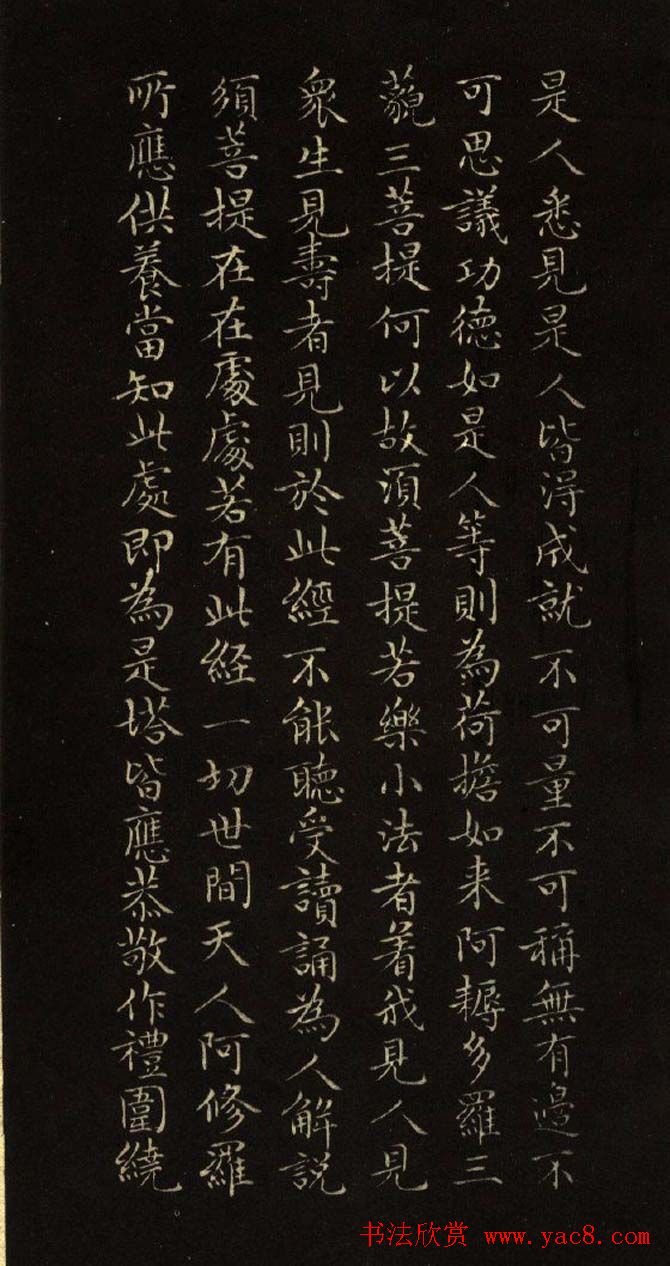 是人悉見是人皆得成就不可量不可稱無有邊不
可思議功德如是人等則為荷擔如来阿耨多羅三
藐三菩提何以故須菩提若樂小法者着我見人見
衆生見壽者見則於此經不能聽受讀誦為人解説
須菩提在在處處若有此經一切世間天人阿修羅
所應供養當知此處即為是塔皆應恭敬作禮圍繞
书法欣赏 www.yac8.com